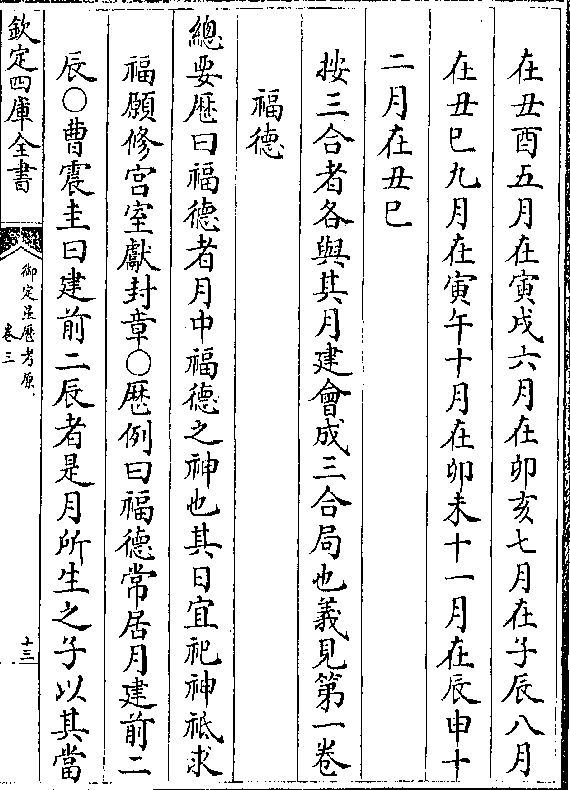 在丑酉五月在寅戌六月在卯亥七月在子辰八月
在丑巳九月在寅午十月在卯未十一月在辰申十
二月在丑巳
按三合者各與其月建會成三合局也義見第一卷
福德
總要厯曰福德者月中福德之神也其日宜祀神祗求
福願修宫室獻封章○厯例曰福德常居月建前二
辰○曹震圭曰建前二辰者是月所生之子以其當
欽定四庫全書
御定星厯考原
卷三
十三